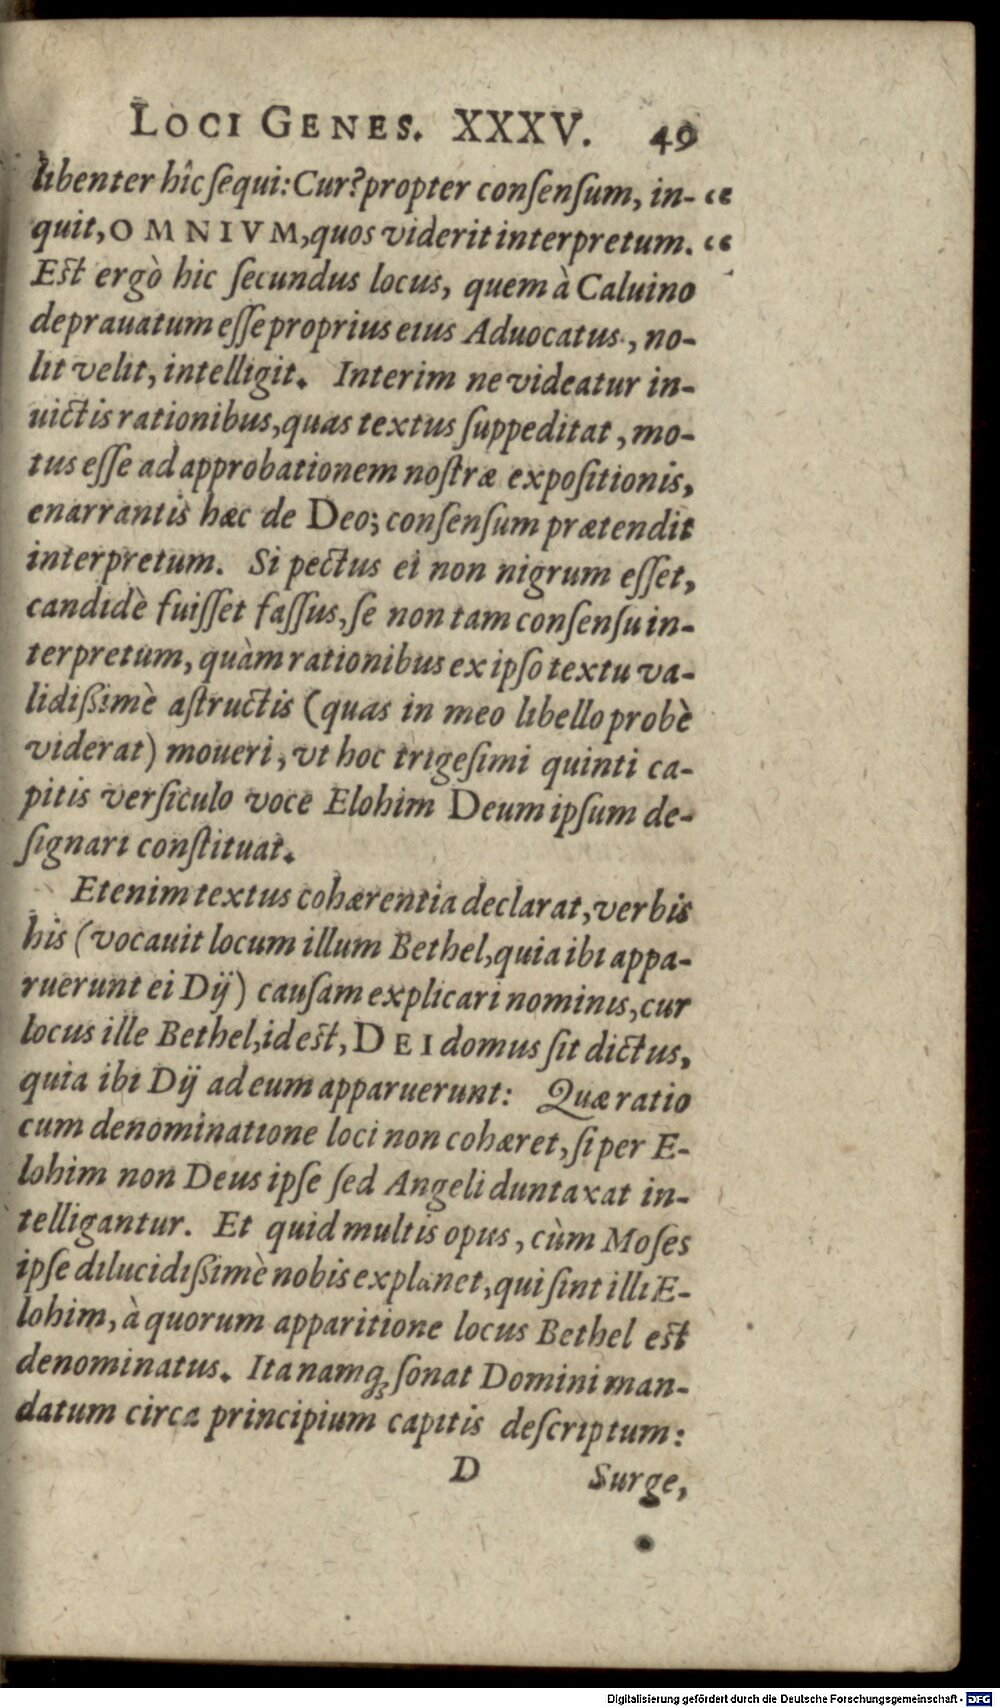 LOCI GENES. XXXV. 49
libenter hîc ſequi: Cur? propter conſenſum, in- “
quit, OMNIVM, quos viderit interpretum. “
Eſt ergò hic ſecundus locus, quem à Caluino
deprauatum eſſe proprius eius Aduocatus, no-
lit velit, intelligit. Interim ne videatur in-
uictis rationibus, quas textus ſuppeditat, mo-
tus eſſe ad approbationem noſtræ expoſitionis,
enarrantis hæc de Deo; conſenſum prætendit
interpretum. Si pectus ei non nigrum eſſet,
candidè fuiſſet faſſus, ſe non tam conſenſu in-
terpretum, quàm rationibus ex ipſo textu va-
lidißimè aſtructis (quas in meo libello probè
viderat) moueri, vt hoc trigeſimi quinti ca-
pitis verſiculo voce Elohim Deum ipſum de-
ſignari conſtituat.
Etenim textus cohærentia declarat, verbis
his (vocauit locum illum Bethel, quia ibi appa-
ruerunt ei Dij) cauſam explicari nominis, cur
locus ille Bethel, id eſt, DEI domus ſit dictus,
quia ibi Dij ad eum apparuerunt: Quæ ratio
cum denominatione loci non cohæret, ſi per E-
lohim non Deus ipſe ſed Angeli duntaxat in-
telligantur. Et quid multis opus, cùm Moſes
ipſe dilucidißimè nobis explanet, qui ſint illi E-
lohim, à quorum apparitione locus Bethel eſt
denominatus. Ita namq; ſonat Domini man-
datum circa principium capitis deſcriptum:
D Surge,
Digitalisierung gefördert durch die Deutsche Forschungsgemeinschaft - DFG